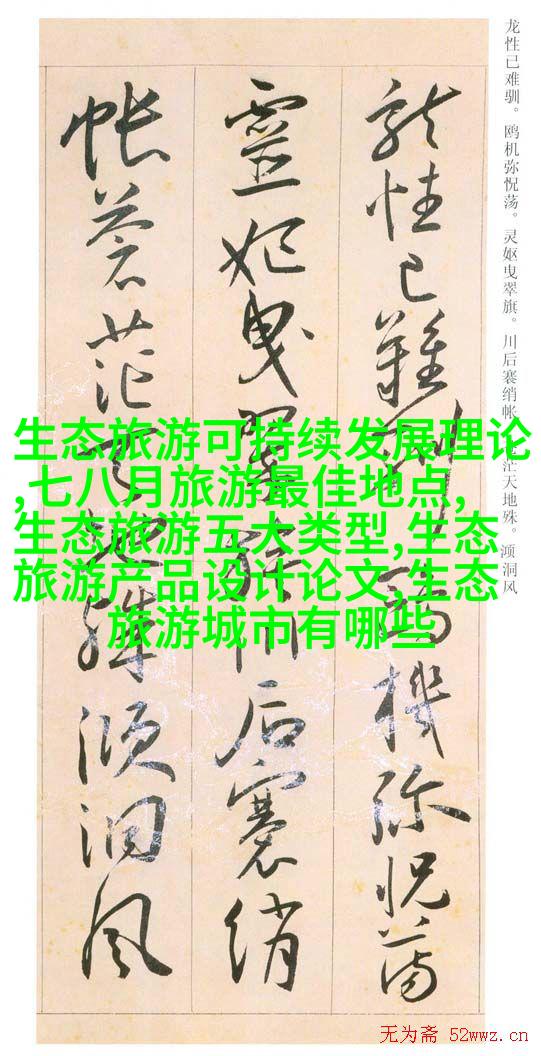 龙性已难驯。鸥机弥怳荡。灵妪曳翠旗。川后褰绡帐 茫天地殊。澒洞风
龍性已難馴鷗機弥怳蕩
靈妃曳翠旗川后褰綃
帳蒼茫天地殊澒洞風
生态旅游可持续发展理论
,七八月旅游最佳地点,
生态旅游五大类型,生态
旅游产品设计论文,生态
旅游城市有哪些
无为斋 52wwz.cn